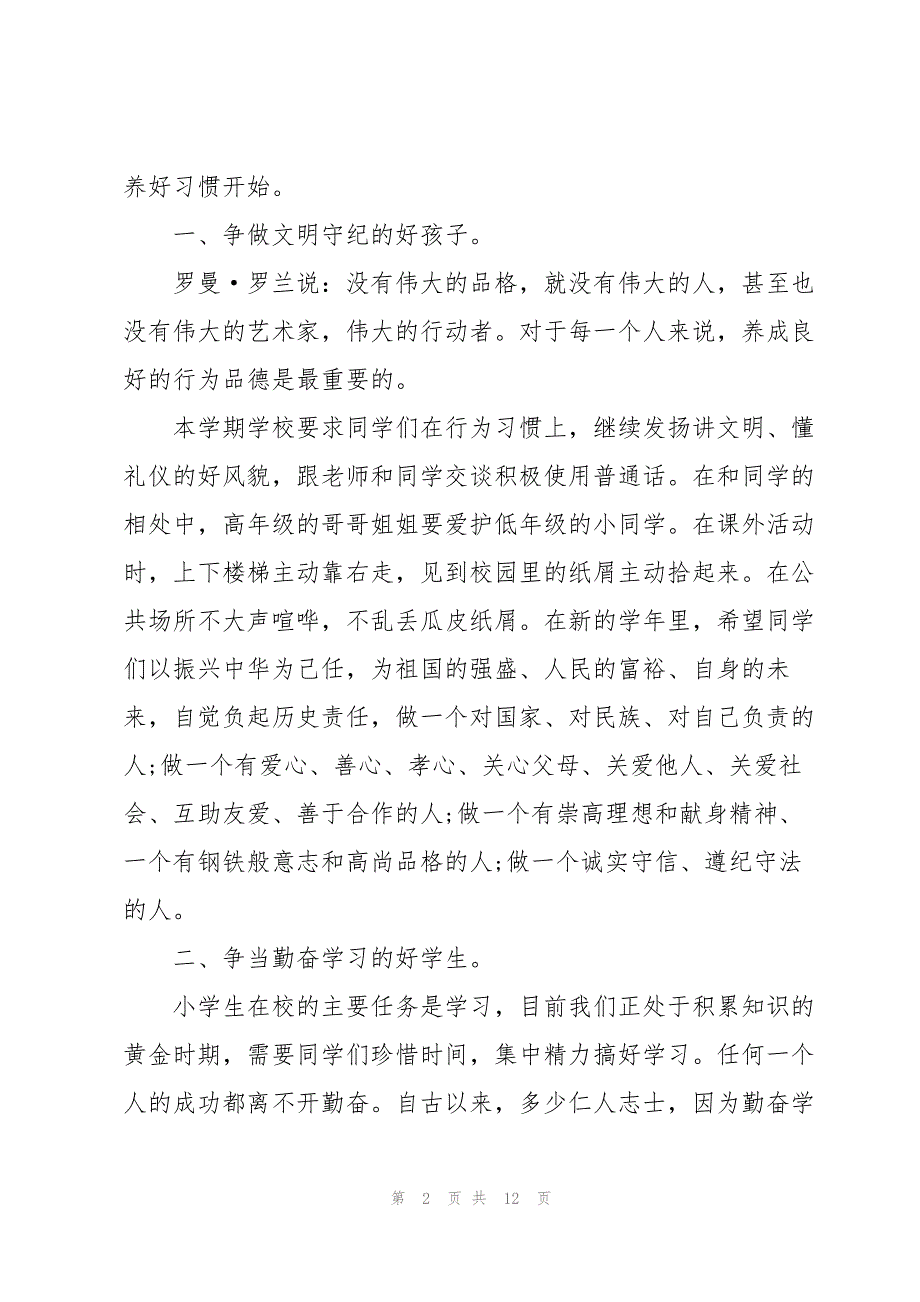 养好习惯开始。
一、争做文明守纪的好孩子。
罗曼·罗兰说：没有伟大的品格，就没有伟大的人，甚至也
没有伟大的艺术家，伟大的行动者。对于每一个人来说，养成良
好的行为品德是最重要的。
本学期学校要求同学们在行为习惯上，继续发扬讲文明、懂
礼仪的好风貌，跟老师和同学交谈积极使用普通话。在和同学的
相处中，高年级的哥哥姐姐要爱护低年级的小同学。在课外活动
时，上下楼梯主动靠右走，见到校园里的纸屑主动拾起来。在公
共场所不大声喧哗，不乱丢瓜皮纸屑。在新的学年里，希望同学
们以振兴中华为己任，为祖国的强盛、人民的富裕、自身的未
来，自觉负起历史责任，做一个对国家、对民族、对自己负责的
人;做一个有爱心、善心、孝心、关心父母、关爱他人、关爱社
会、互助友爱、善于合作的人;做一个有崇高理想和献身精神、
一个有钢铁般意志和高尚品格的人;做一个诚实守信、遵纪守法
的人。
二、争当勤奋学习的好学生。
小学生在校的主要任务是学习，目前我们正处于积累知识的
黄金时期，需要同学们珍惜时间，集中精力搞好学习。任何一个
人的成功都离不开勤奋。自古以来，多少仁人志士，因为勤奋学
第 2 页 共 12 页